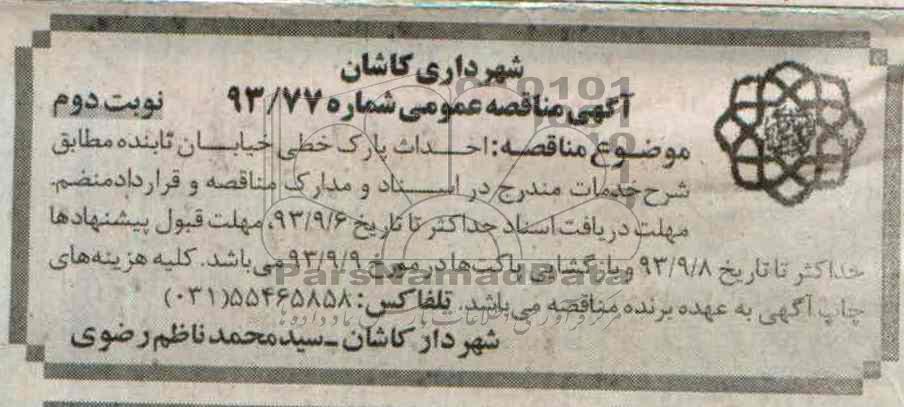 شهرداری کاشان
آگهی مناقصه عمومی شماره ۹۳/۷۷ نوبت دوم
موضوع مناقصه: احداث پارک خطی خیابان تابنده مطابق
شرح خدمات مندرج در اسناد و مدارک مناقصه و قرارداد منضم.
مهلت دریافت اسناد حداکثر تا تاریخ ۹۳/۹/۶، مهلت قبول پیشنهادها
حداکثر تا تاریخ ۹۳/۹/۸ و بازگشایی پاکت‌ها در مورخ ۹۳/۹/۹ می‌باشد. کلیه هزینه‌های
چاپ آگهی به عهده برنده مناقصه می‌باشد. تلفاکس: ۵۵۴۶۵۸۵۸(۰۳۱)
شهردار کاشان - سیدمحمد ناظم رضوی
ParsNamadData